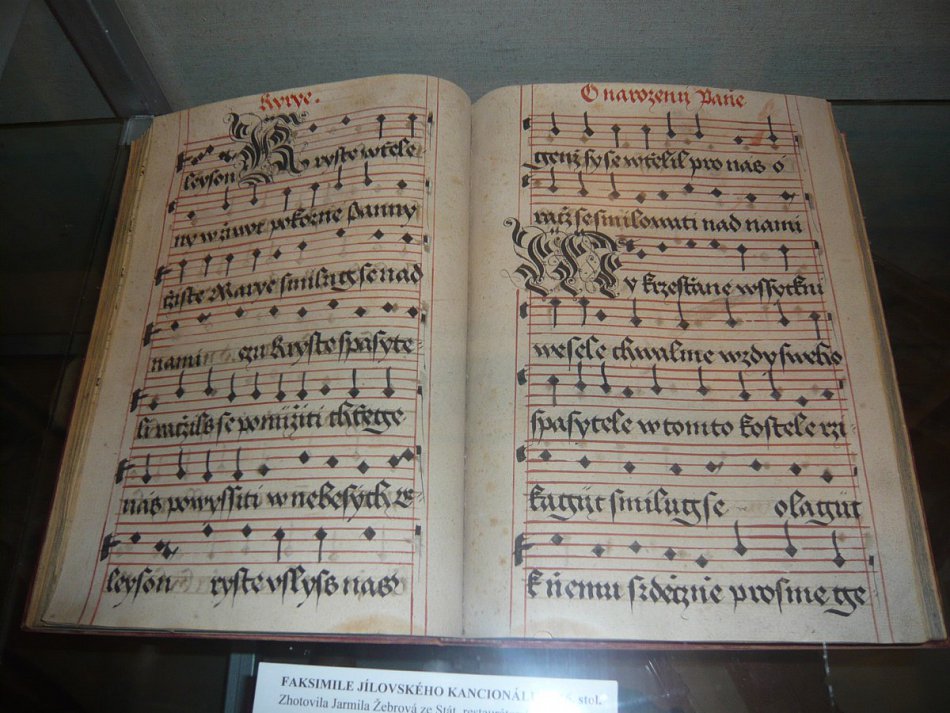 Kyrye.
Kryste wtěle
leyson
ny w žiwot pokorné Panny
čisté Marye smilůg se nad
nami gu Kryste spasyte-
li račils se ponížiti chtěge
nás powyssiti w nebesých
leyson ryste vslyss nas
O narozenij Paně
genž sy se wtělil pro nás ó
račž se smilowati nad námi
My krzestiané wssyckni
wesele chwalme wždy sweho
spasytele w tomto kostele rzi-
kagijc smilůg se olagijc
k němu srdečně prosme ge
FAKSIMILE JÍLOVSKÉHO KANCIONÁL stol.
Zhotovila Jarmila Žebrová ze Stát.